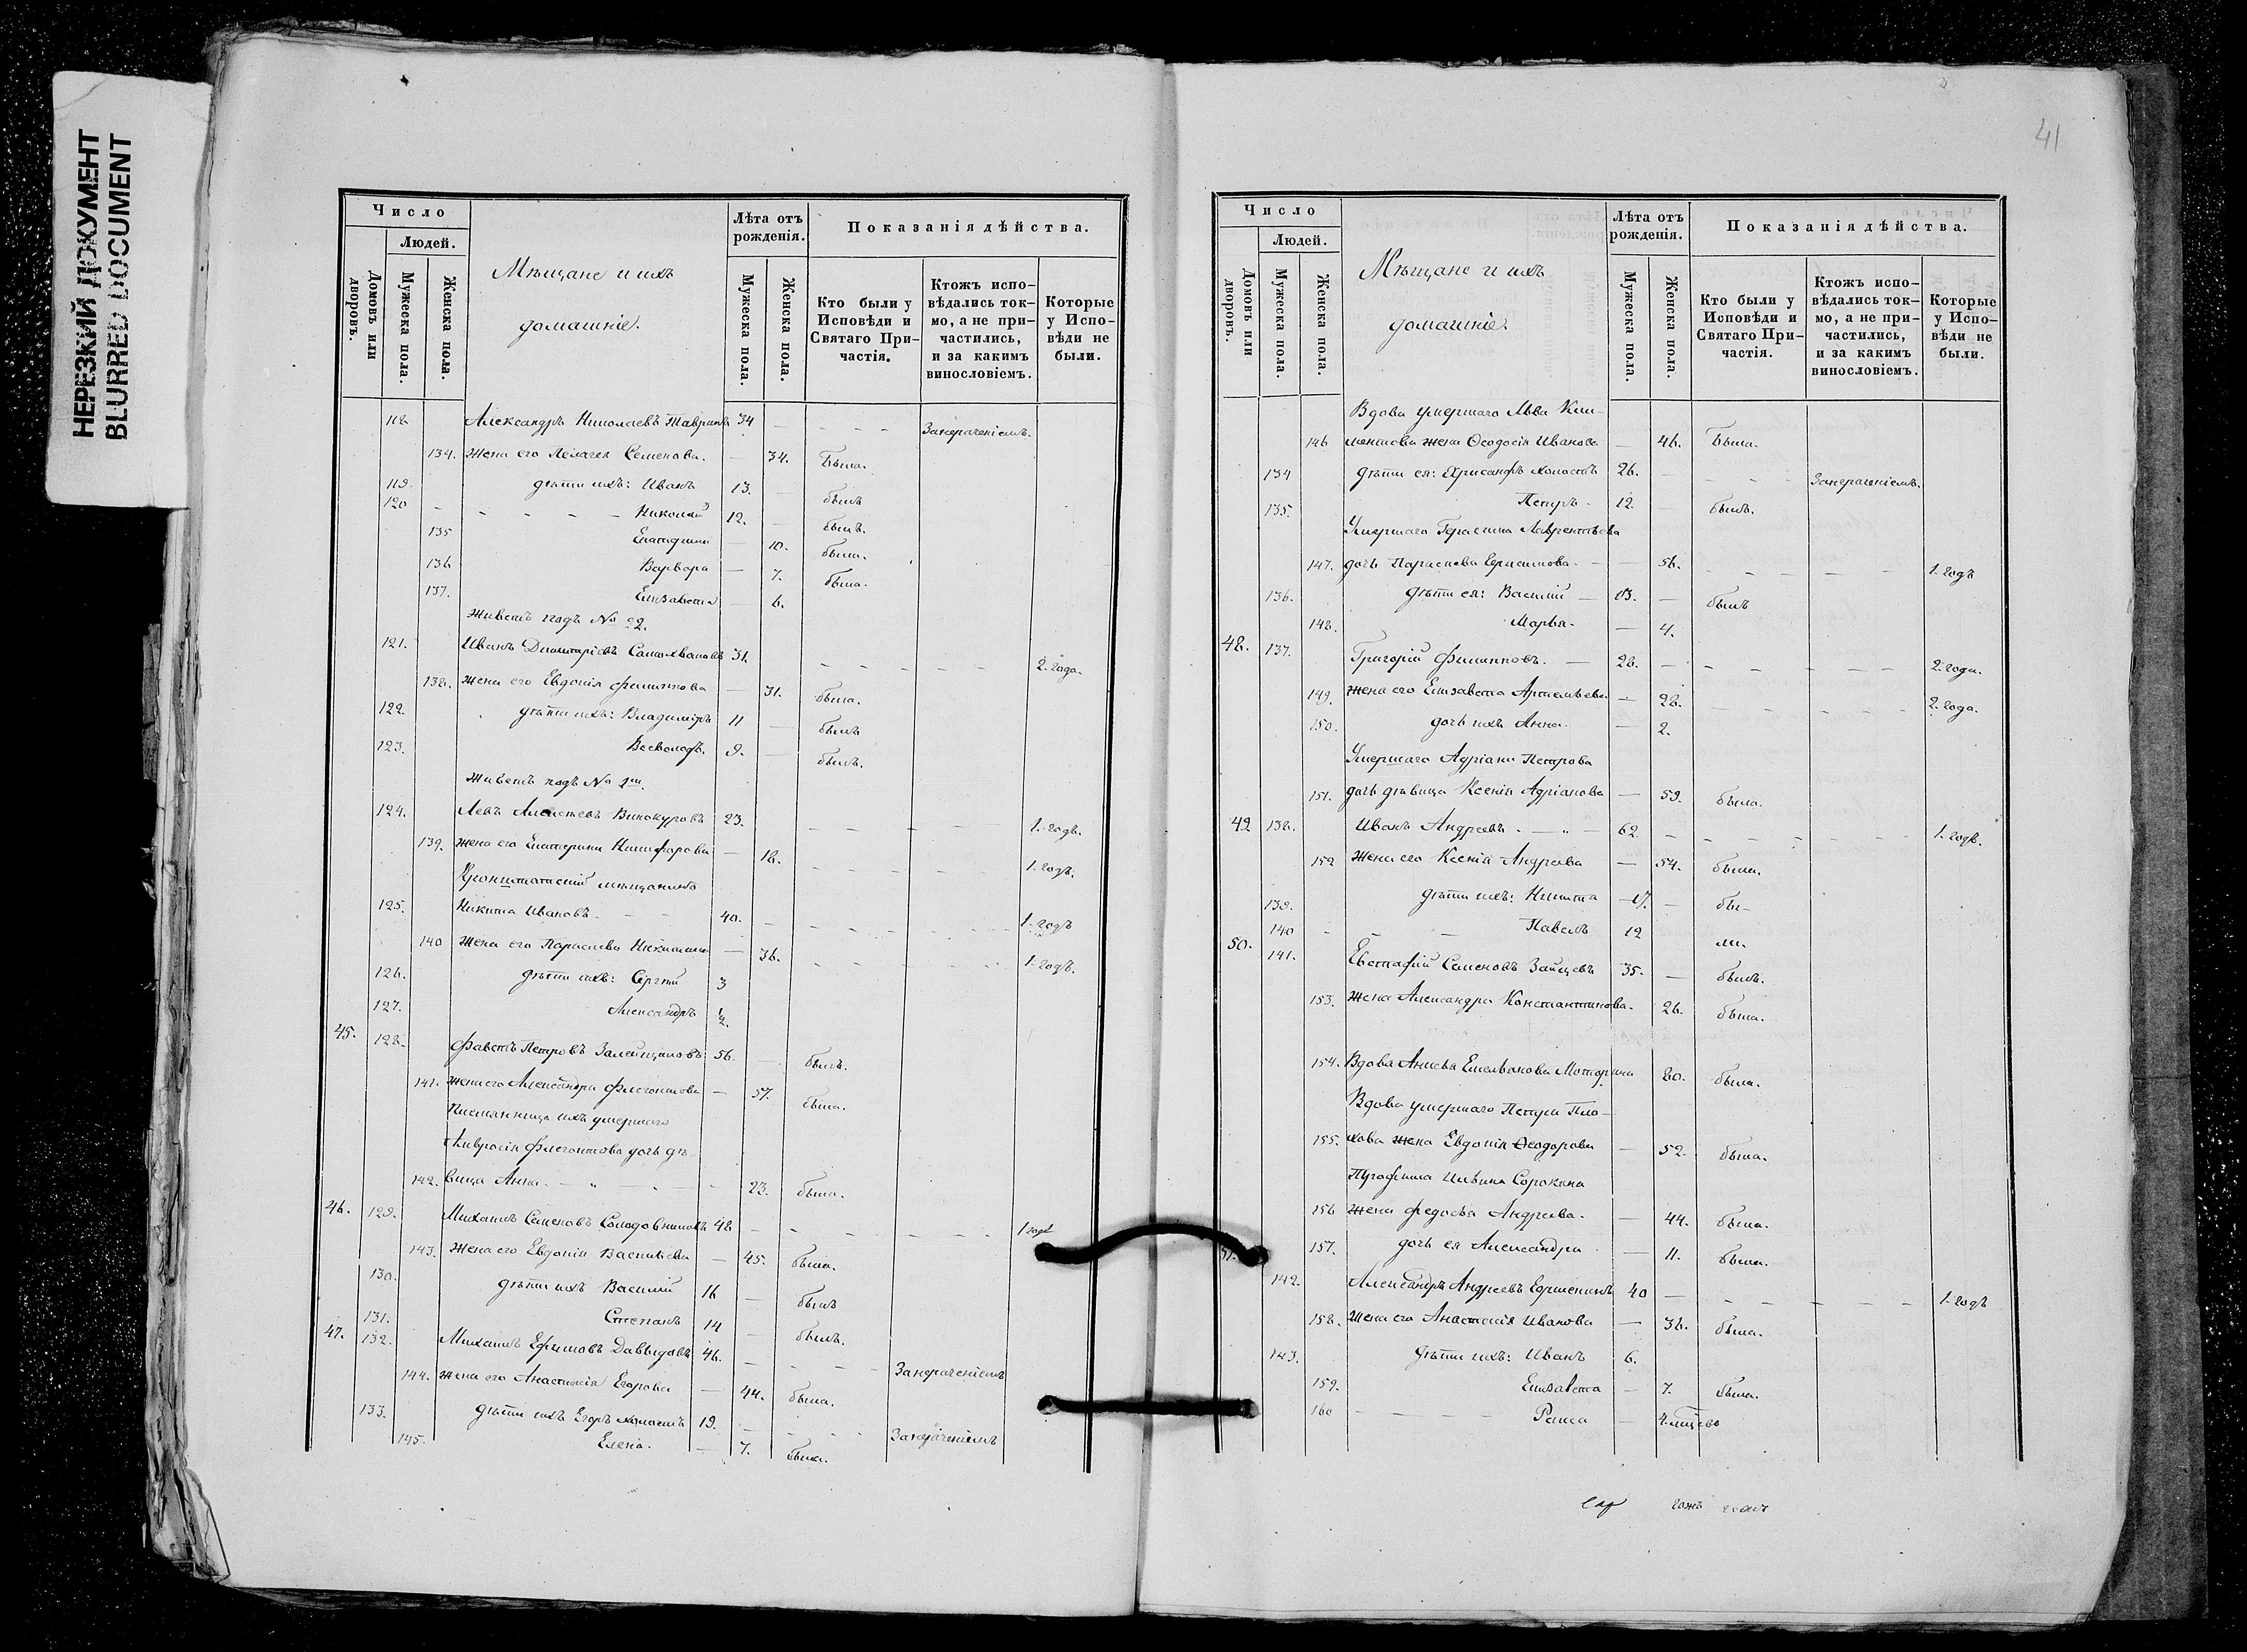 НЕРЕЗКИЙ ДОКУМЕНТ
BLURRED DOCUMENT
Число
Людей.
Домовъ или дворовъ.
Мужеска пола.
Женска пола.
Мѣщане и ихъ
домашніе.
Лѣта отъ рожденія.
Мужеска пола.
Женска пола.
Показанія дѣйства.
Кто были у Исповѣди и Святаго Причастія.
Ктожъ исповѣдались токмо, а не причастились, и за какимъ винословіемъ.
Которые у Исповѣди не были.
118. Александръ Николаевъ 34 — - - -
134. Жена его Пелагея Семенова. — 34. Была.
119. дѣти ихъ: Иванъ 13. — былъ
120 - - - - - Николай 12. — былъ.
135 — 10. была.
136 Варвара — 7. была.
137. Елизавета 6.
Живетъ подъ № 22.
121. Иванъ Димитріевъ 31. - - - - - 2. года.
138. Жена его Евдокія Филиппова — 31. была.
122. дѣти ихъ: Владиміръ 11 — былъ
123. Всеволодъ. 9. — былъ.
Живетъ подъ №
124. Левъ Алексѣевъ Винокуровъ 23. - - - - 1. годъ.
139. Жена его Екатерина Никифорова — 18. - - - - 1. годъ.
Кронштатскій мѣщанинъ
125. Никита Ивановъ. - - 40. - - - - 1. годъ
140 Жена его Параскева — 36. - - - - 1. годъ.
126. дѣти ихъ: Сергѣй 3
127. Александръ ½.
45. 128. Фавстъ Петровъ 56. — былъ.
141. Жена его Александра Флегонтова — 57. была.
Племянница ихъ умершаго
Амвросія Флегонтова дочь дѣ-
142. вица Анна. — „ — - - 23. была.
46. 129. Михаилъ Семеновъ Солодовниковъ 48 - - - - - - 1 годъ
143. Жена его Евдокія Васильева — 45. была.
130. дѣти ихъ Василій 16 — былъ
131. Степанъ 14 — былъ.
47. 132. Михаилъ Ефимовъ Давыдовъ 46. — - - - -
144. Жена его Анастасія Егорова — 44. была.
133. дѣти ихъ Егоръ холостъ 19. - - - -
145. Елена. — 7. была.
41
Число
Людей.
Домовъ или дворовъ.
Мужеска пола.
Женска пола.
Мѣщане и ихъ
домашніе.
Лѣта отъ рожденія.
Мужеска пола.
Женска пола.
Показанія дѣйства.
Кто были у Исповѣди и Святаго Причастія.
Ктожъ исповѣдались токмо, а не причастились, и за какимъ винословіемъ.
Которые у Исповѣди не были.
Вдова умершаго Льва Кли-
146 ментова жена Ѳеодосія Иванова — 46. Была.
134 дѣти ея: Хрисанфъ холостъ 26. — - - -
135. Петръ - 12. — былъ.
Умершаго Герасима Лаврентьева
147. дочь Параскева Герасимова. - — 56. - - - - - 1. годъ
136. дѣти ея: Василій — 13. — былъ
148. Марья. — 4.
48. 137. Григорій Филипповъ. — 28. — - - - - - - 2. года.
149. Жена его Елизавета Артемьева — 28. - - - - - 2. года.
150. дочь ихъ Анна. — 2.
Умершаго Адріана Петрова
151. дочь дѣвица Ксенія Адріанова — 59. была.
49 138. Иванъ Андреевъ - — „ — 62. — - - - - - 1. годъ.
152 Жена его Ксенія Андреева — 54. была.
139. дѣти ихъ: Никита 17. — бы-
140 - - - Павелъ 12 ли.
50. 141. Евстафій Семеновъ Зайцевъ 35. — былъ.
153. Жена Александра Константинова. 26. была.
154. Вдова Анисья Емельянова 80. была.
Вдова умершаго Петра Пло-
155. хова жена Евдокія Ѳеодорова — 52. была.
Ильина Сорокина
156 Жена Федосья Андреева. — 44. была.
157. дочь ея Александра — 11. была.
51. 142. Александръ Андреевъ 40 — - - - - - 1. годъ
158. Жена его Анастасія Иванова — 36. была.
143. дѣти ихъ: Иванъ 6.
159. Елизавета — 7. была.
160 - - - - Раиса —